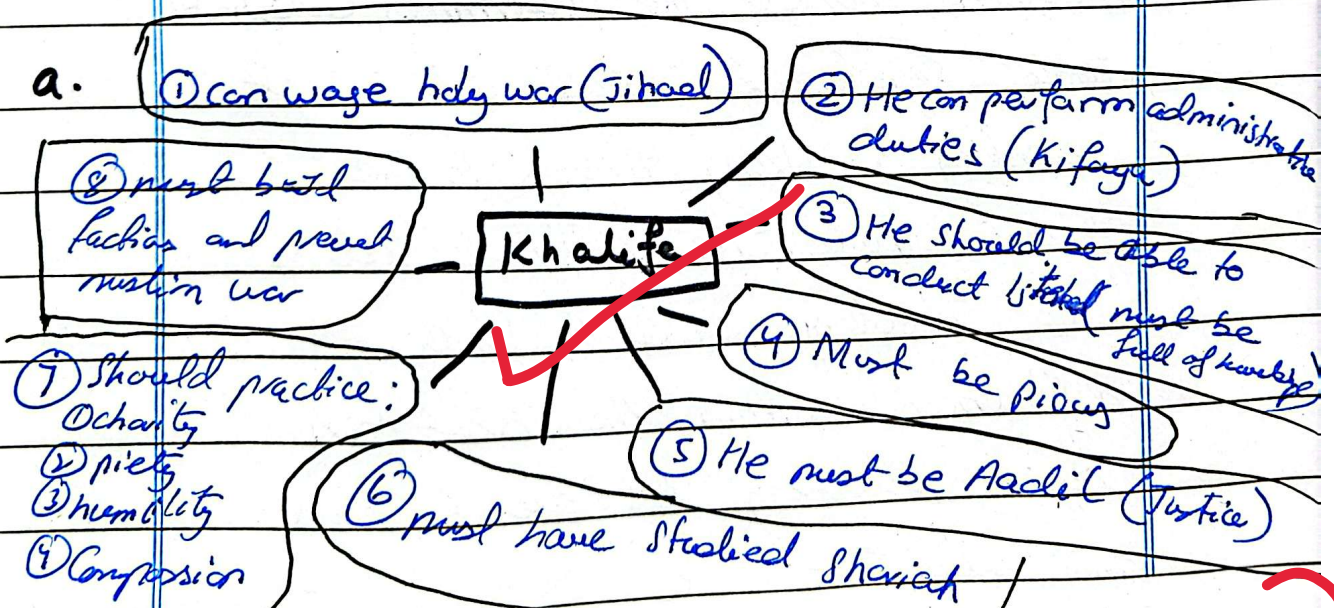 a.
① can wage holy war (Jihad)
② He can perform administrative
duties (Kifaya)
Khalife
③ He should be able to
conduct must be
full of
④ Must be pious
⑤ He must be Aadil (Justice)
⑥ must have Studied Shariah
⑦ Should practice:
① charity
② piety
③ humility
④ Compassion
⑧ must build
and prevent
muslim war